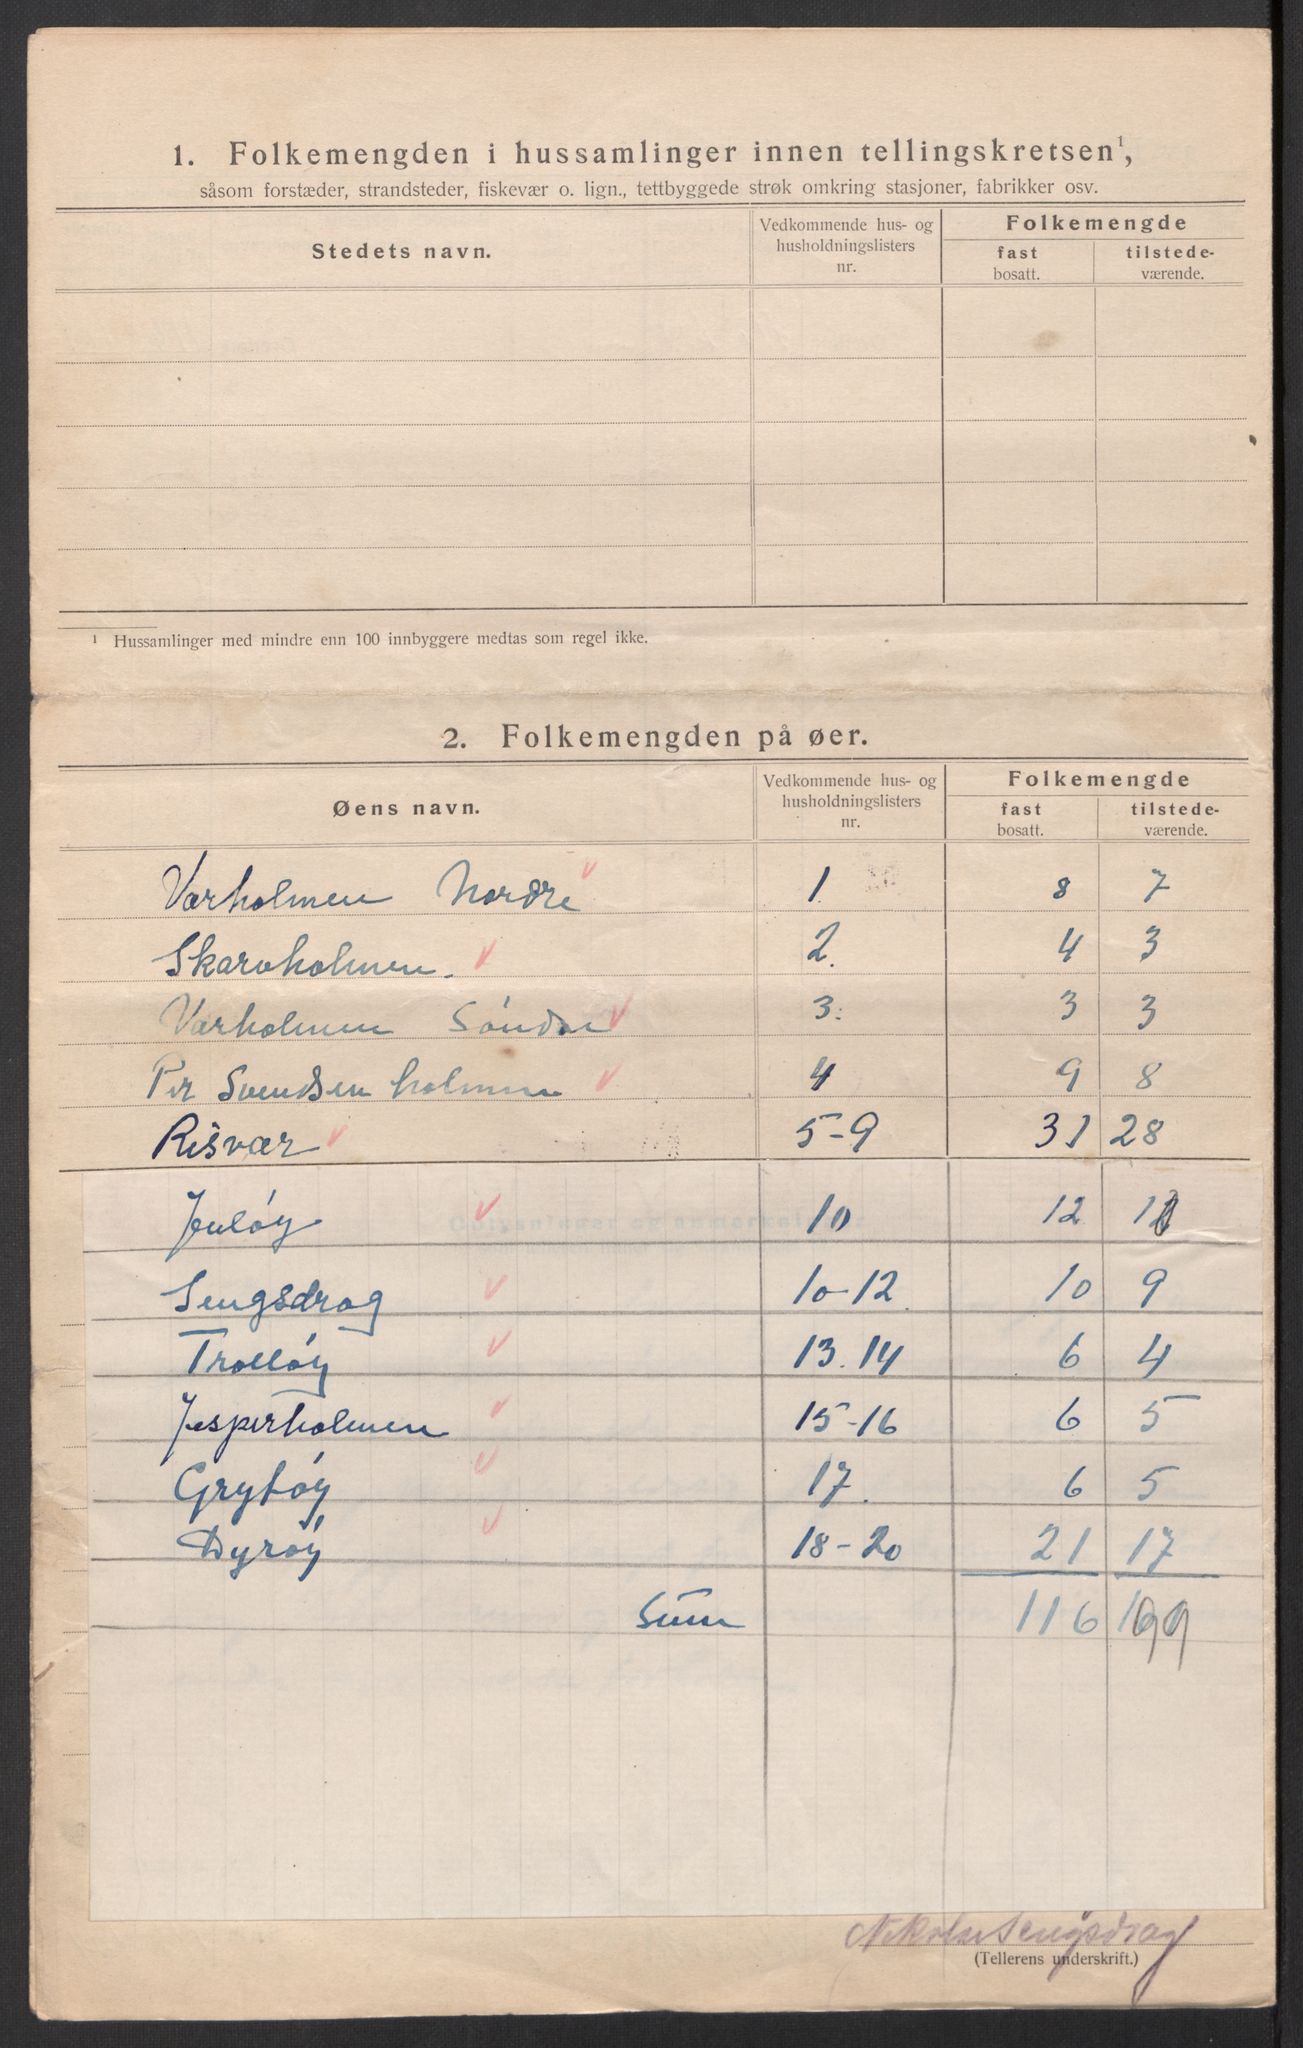 1. Folkemengden i hussamlinger innen tellingskretsen¹,
såsom forstæder, strandsteder, fiskevær o. lign., tettbyggede strøk omkring stasjoner, fabrikker osv.
Stedets navn. Vedkommende hus- og husholdningslisters nr. Folkemengde fast bosatt. tilstede-værende.
¹ Hussamlinger med mindre enn 100 innbyggere medtas som regel ikke.
2. Folkemengden på øer.
Øens navn. Vedkommende hus- og husholdningslisters nr. Folkemengde fast bosatt. tilstede-værende.
Værholmen Nordre 1 8 7
Skarvholmen. 2. 4 3
Værholmen Söndre 3. 3 3
Per Svendsenholmen 4 9 8
Risvær 5-9 31 28
10 12
Sengsdrag 10-12 10 9
Trollöy 13.14 6 4
Jesperholmen 15-16 6 5
Grytöy 17. 6 5
Dyröy 18-20 21 17
Sum 116
Sengsdrag
(Tellerens underskrift.)